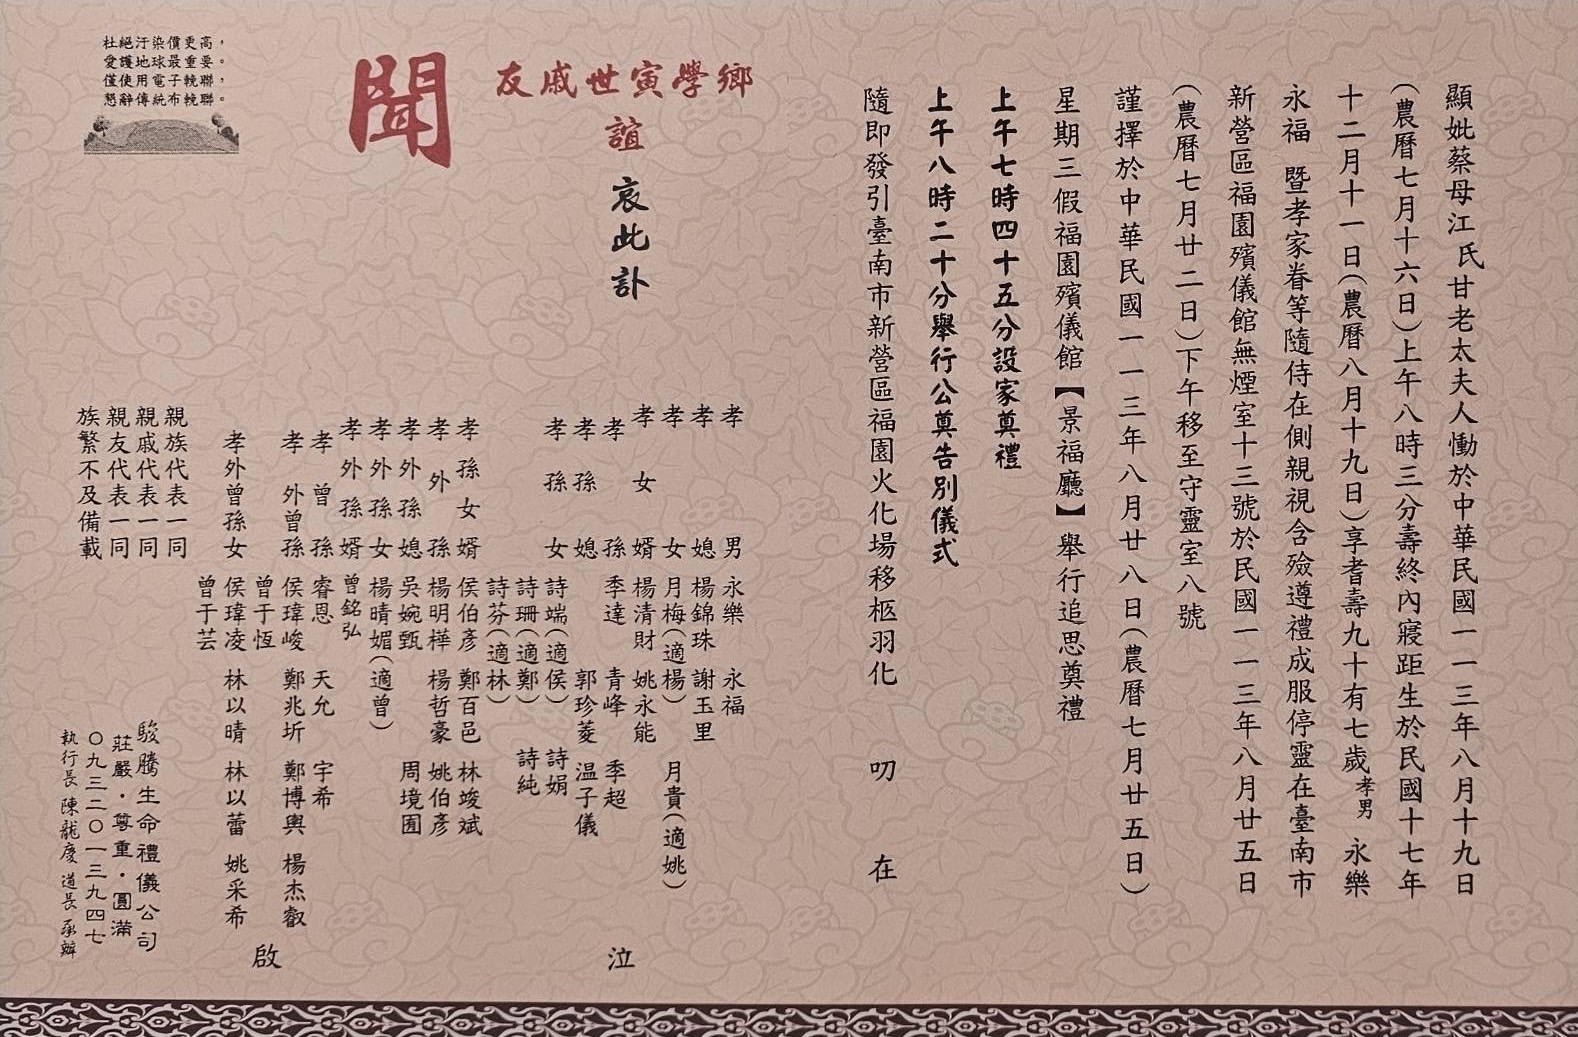 顯妣蔡母江氏甘老太夫人慟於中華民國一一三年八月十九日
(農曆七月十六日)上午八時三分壽終內寢距生於民國十七年
十二月十一日(農曆八月十九日)享耆壽九十有七歲孝男 永樂
永福 暨孝家眷等隨侍在側親視含殮遵禮成服停靈在臺南市
新營區福園殯儀館無煙室十三號於民國一一三年八月廿五日
(農曆七月廿二日)下午移至守靈室八號
謹擇於中華民國一一三年八月廿八日(農曆七月廿五日)
星期三假福園殯儀館【景福廳】舉行追思奠禮
上午七時四十五分設家奠禮
上午八時二十分舉行公奠告別儀式
隨即發引臺南市新營區福園火化場移柩羽化 叨 在
鄉學寅世戚友
誼
哀此訃
聞
孝男 永樂 永福
孝媳 楊錦珠 謝玉里
孝女 月梅(適楊) 月貴(適姚)
孝女婿 楊清財 姚永能
孝孫 季達 青峰 季超
孝孫媳 郭珍菱 温子儀
孝孫女 詩端(適侯) 詩娟
詩珊(適鄭) 詩純
詩芬(適林)
孝孫女婿 侯伯彥 鄭百邑 林竣斌
孝外孫 楊明樺 楊哲豪 姚伯彥
孝外孫媳 吳婉甄 周境囿
孝外孫女 楊晴媚(適曾)
孝外孫婿 曾銘弘
孝曾孫 睿恩 天允 宇希
孝外曾孫 侯瑋峻 鄭兆圻 鄭博輿 楊杰叡
曾于恆
孝外曾孫女 侯瑋凌 林以晴 林以蕾 姚采希
曾于芸
泣
啟
親族代表一同
親戚代表一同
親友代表一同
族繁不及備載
駿騰生命禮儀公司
莊嚴．尊重．圓滿
〇九三二〇一三九四七
執行長 陳龍慶 道長 承辦
杜絕汙染價更高，
愛護地球最重要。
僅使用電子輓聯，
懇辭傳統布輓聯。